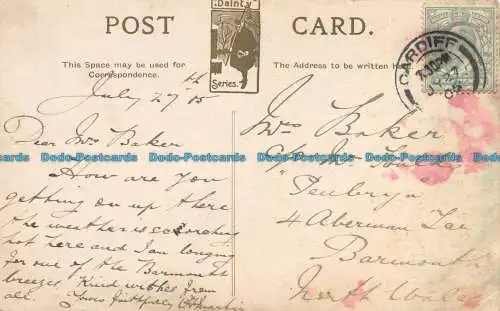 POST CARD.
Dainty
Series.
This Space may be used for
Correspondence.
The Address to be written here
CARDIFF
July 27th 05
Dear Mrs Baker
How are you
getting on up there
the weather is scorching
hot here and I am longing
for one of the Barmouth
breezes, Kind wishes from
all. Yours faithfully
Mrs Baker
"Penbryn"
4 Aberman
Barmouth
North Wales
Dodo-Postcards Dodo-Postcards Dodo-Postcards Dodo-Postcards Dodo-Postcards